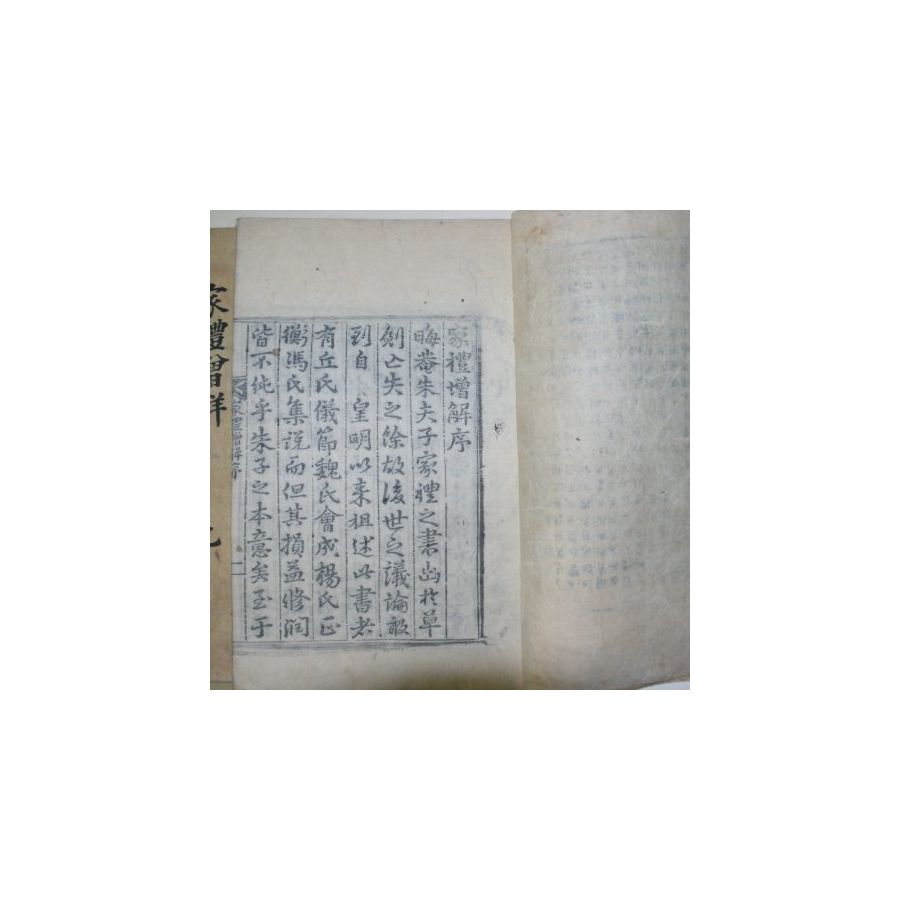 家禮增解序
晦菴朱夫子家禮之書出於草
創亡失之餘故後世之議論敢
到自 皇明以来祖述此書者
有丘氏儀節魏氏會成楊氏正
衡馮氏集説而但其損益修潤
皆不純乎朱子之本意矣至于
家禮增解序
一
家禮增解